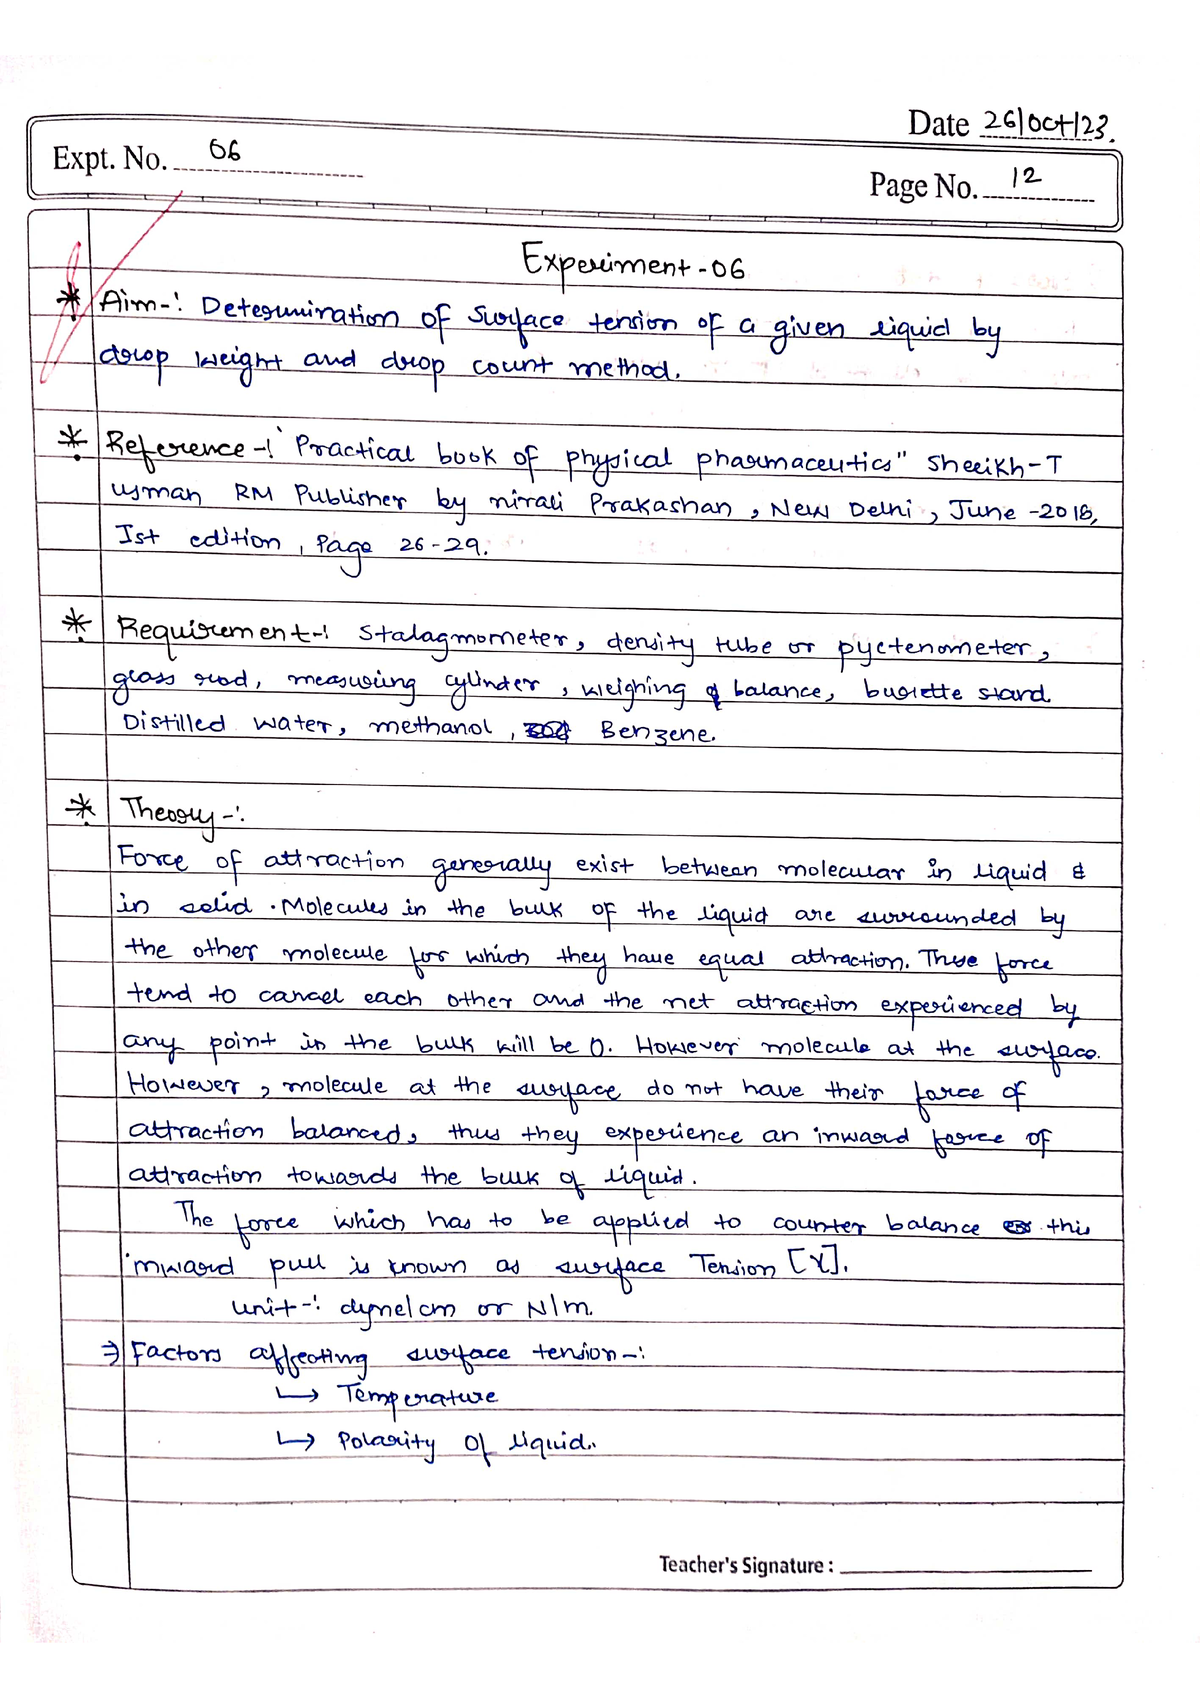 Date 26/oct/23.
Expt. No. 06
Page No. 12
Experiment-06
* Aim-: Determination of surface tension of a given liquid by
drop weight and drop count method.
* Reference-: "Practical book of physical pharmaceutics" Sheeikh-T
usman RM Publisher by nirali Prakashan, New Delhi, June-2018,
Ist edition, Page 26-29.
* Requirement-: Stalagmometer, density tube or pyctenometer,
glass rod, measuring cylinder, weighing balance, burette stand
Distilled water, methanol, Benzene.
* Theory-:
Force of attraction generally exist between molecular in liquid &
in solid. Molecules in the bulk of the liquid are surrounded by
the other molecule for which they have equal attraction. These force
tend to cancel each other and the net attraction experienced by
any point in the bulk will be 0. However molecule at the surface.
However, molecule at the surface do not have their force of
attraction balanced, thus they experience an inward force of
attraction towards the bulk of liquid.
The force which has to be applied to counter balance this
inward pull is known as surface Tension [γ].
unit-: dyne/cm or N/m.
⇒ Factors affecting surface tension-:
↳ Temperature
↳ Polarity of liquid.
Teacher's Signature :